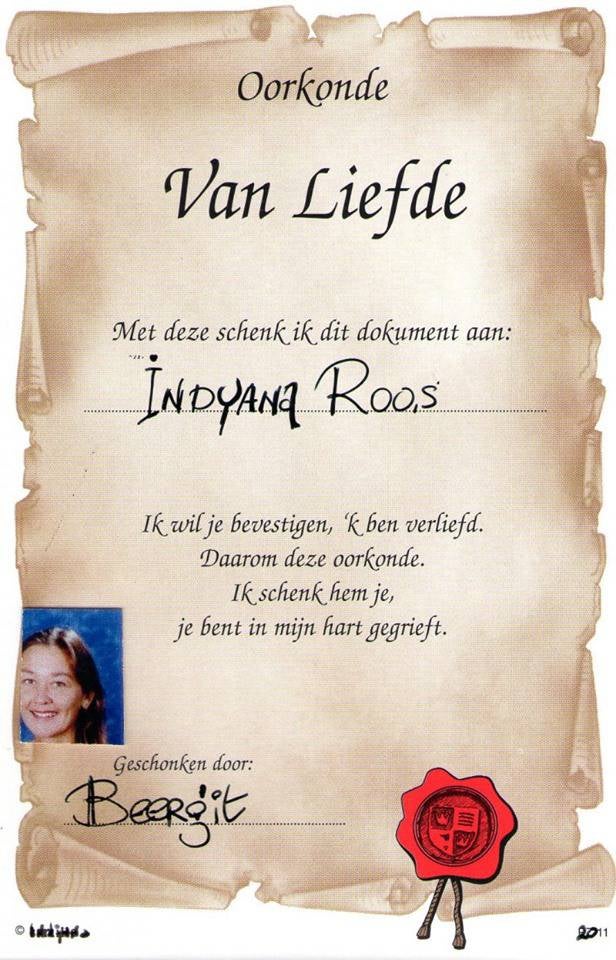 Oorkonde
Van Liefde
Met deze schenk ik dit dokument aan:
INDYANA ROOS
Ik wil je bevestigen, 'k ben verliefd.
Daarom deze oorkonde.
Ik schenk hem je,
je bent in mijn hart gegrieft.
Geschonken door:
Beergit
©
2011